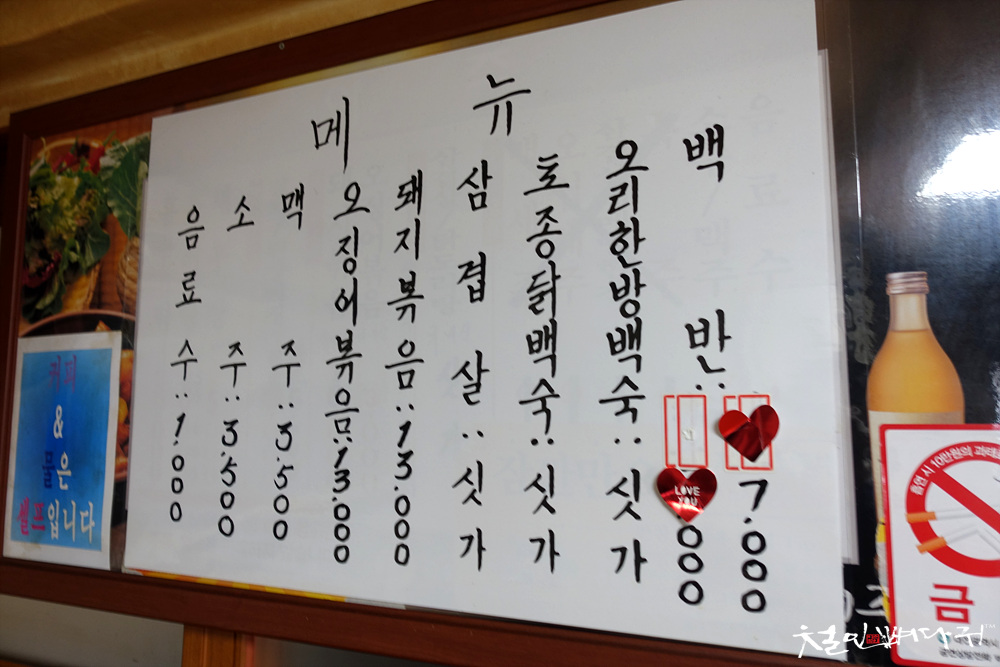 메뉴
백반: 7.000
000
LOVE YOU
오리한방백숙: 싯가
토종닭백숙: 싯가
삼겹살: 싯가
돼지볶음: 13.000
오징어볶음: 13.000
맥주: 3.500
소주: 3.500
음료수: 1.000
커피
&
물은
셀프입니다
흡연시 10만원의 과태료
금
철민빠다쥐